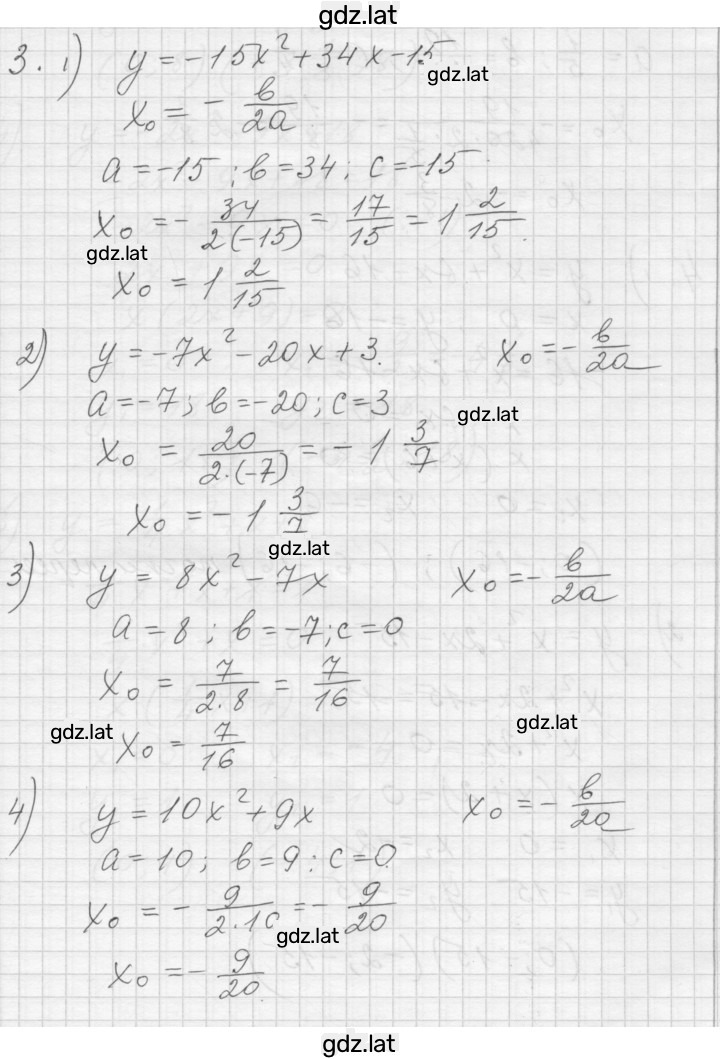 gdz.lat
3. 1) y = -15x² + 34x - 15
gdz.lat
x₀ = - в/2a
a = -15 ; в = 34 ; c = -15
x₀ = - 34/2(-15) = 17/15 = 1 2/15
gdz.lat
x₀ = 1 2/15
2) y = -7x² - 20x + 3. x₀ = - в/2a
a = -7 ; в = -20 ; c = 3
gdz.lat
x₀ = 20/2·(-7) = - 1 3/7
x₀ = - 1 3/7
gdz.lat
3) y = 8x² - 7x x₀ = - в/2a
a = 8 ; в = -7 ; c = 0
x₀ = 7/2·8 = 7/16
gdz.lat
gdz.lat
x₀ = 7/16
4) y = 10x² + 9x x₀ = - в/2a
a = 10 ; в = 9 ; c = 0
x₀ = - 9/2·10 = - 9/20
gdz.lat
x₀ = - 9/20
gdz.lat